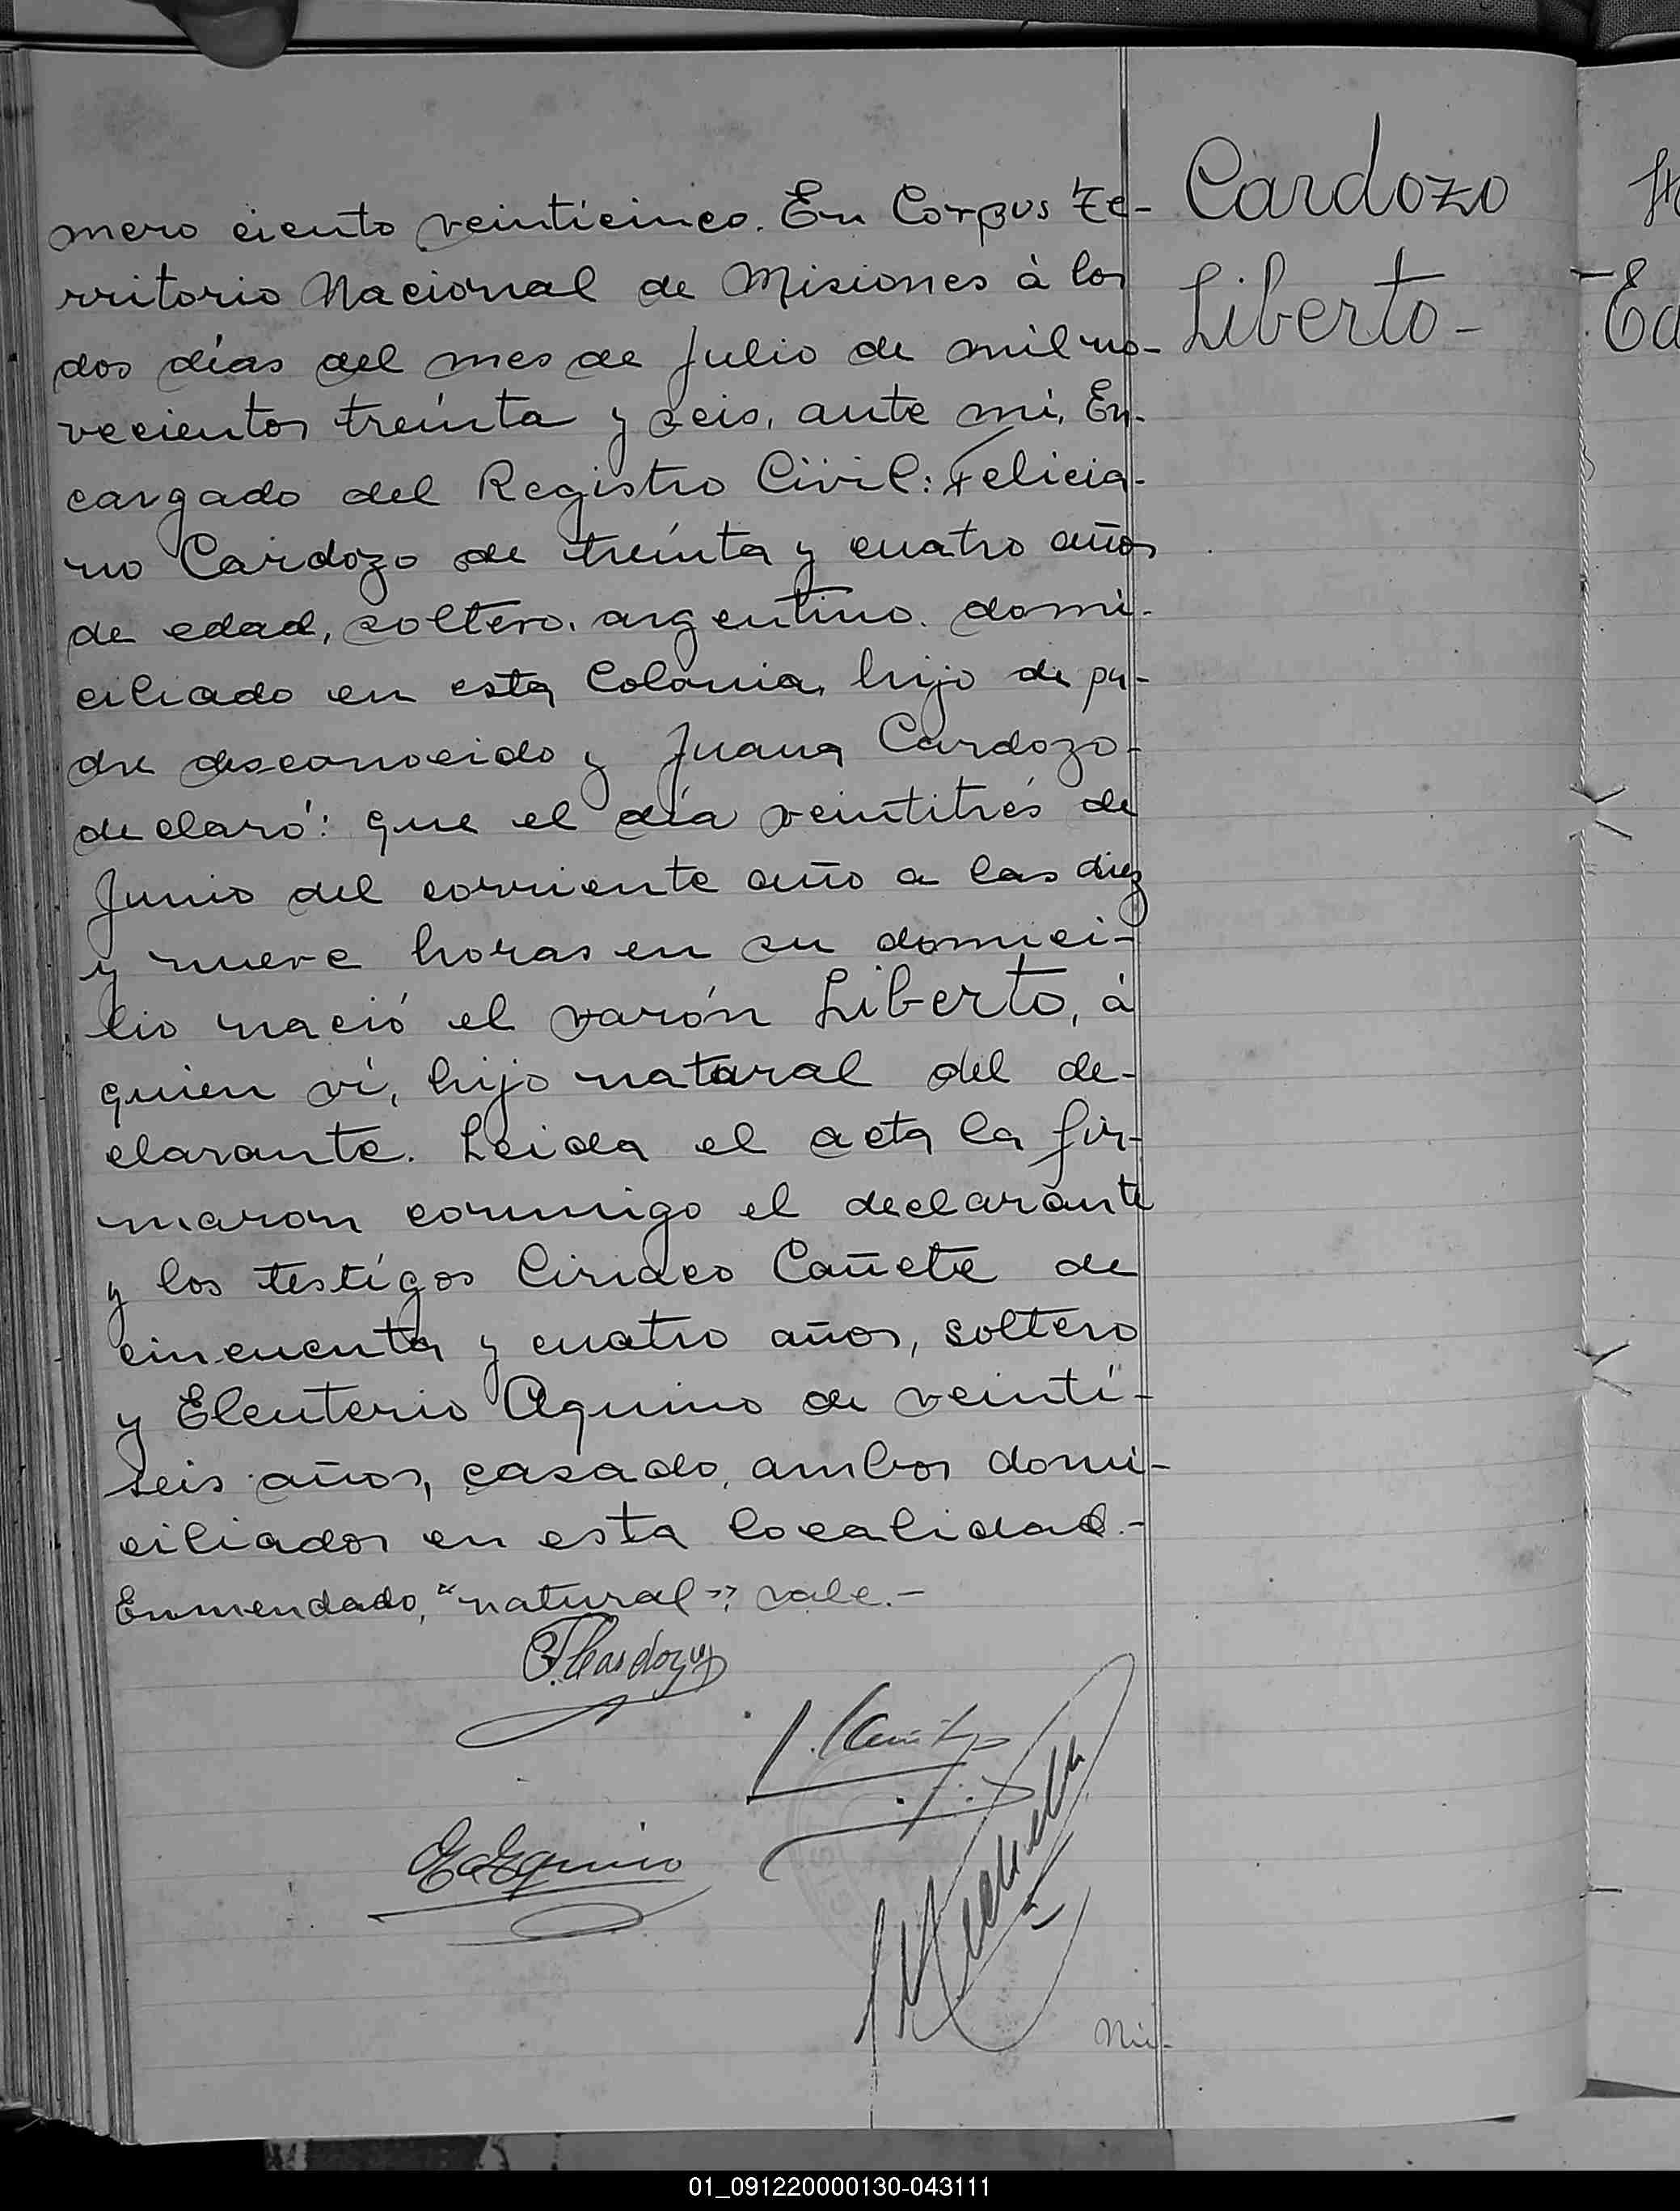 mero ciento veinticinco. En Corpus Te-
rritorio Nacional de Misiones à los
dos días del mes de Julio de mil no-
vecientos treinta y seis, ante mi, En-
cargado del Registro Civil: Felicia-
no Cardozo de treinta y cuatro años
de edad, soltero, argentino, domi-
ciliado en esta Colonia, hijo de pa-
dre desconocido y Juana Cardozo-
declaró: que el día veintitrés de
Junio del corriente año a las diez
y nueve horas en su domici-
lio nació el varón Liberto, à
quien ví, hijo natural del de-
clarante. Leida el acta la fir-
maron conmigo el declarante
y los testigos Ciriaco Cañete de
cincuenta y cuatro años, soltero
y Eleuterio Aquino de veinti-
seis años, casado, ambos domi-
ciliados en esta localidad.-
Enmendado, "natural" vale.-
Cardozo
Liberto-
F. Cardozo
E. Aquino
Nú-
01_091220000130-043111